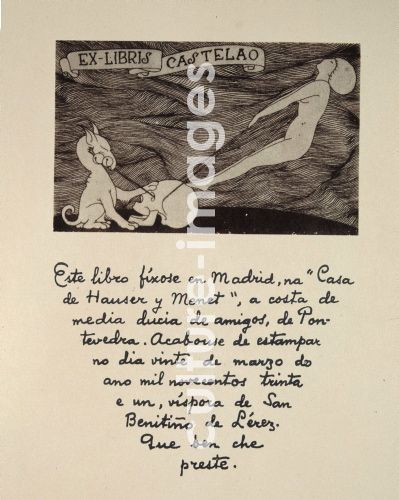 EX-LIBRIS CASTELAO
Este libro fíxose en Madrid, na "Casa
de Hauser y Menet", a costa de
media ducia de amigos, de Pon-
tevedra. Acabouse de estampar
no dia vinte de marzo do
ano mil novecentos trinta
e un, víspora de San
Benitiño de Lérez.
Que ben che
preste.
culture-images